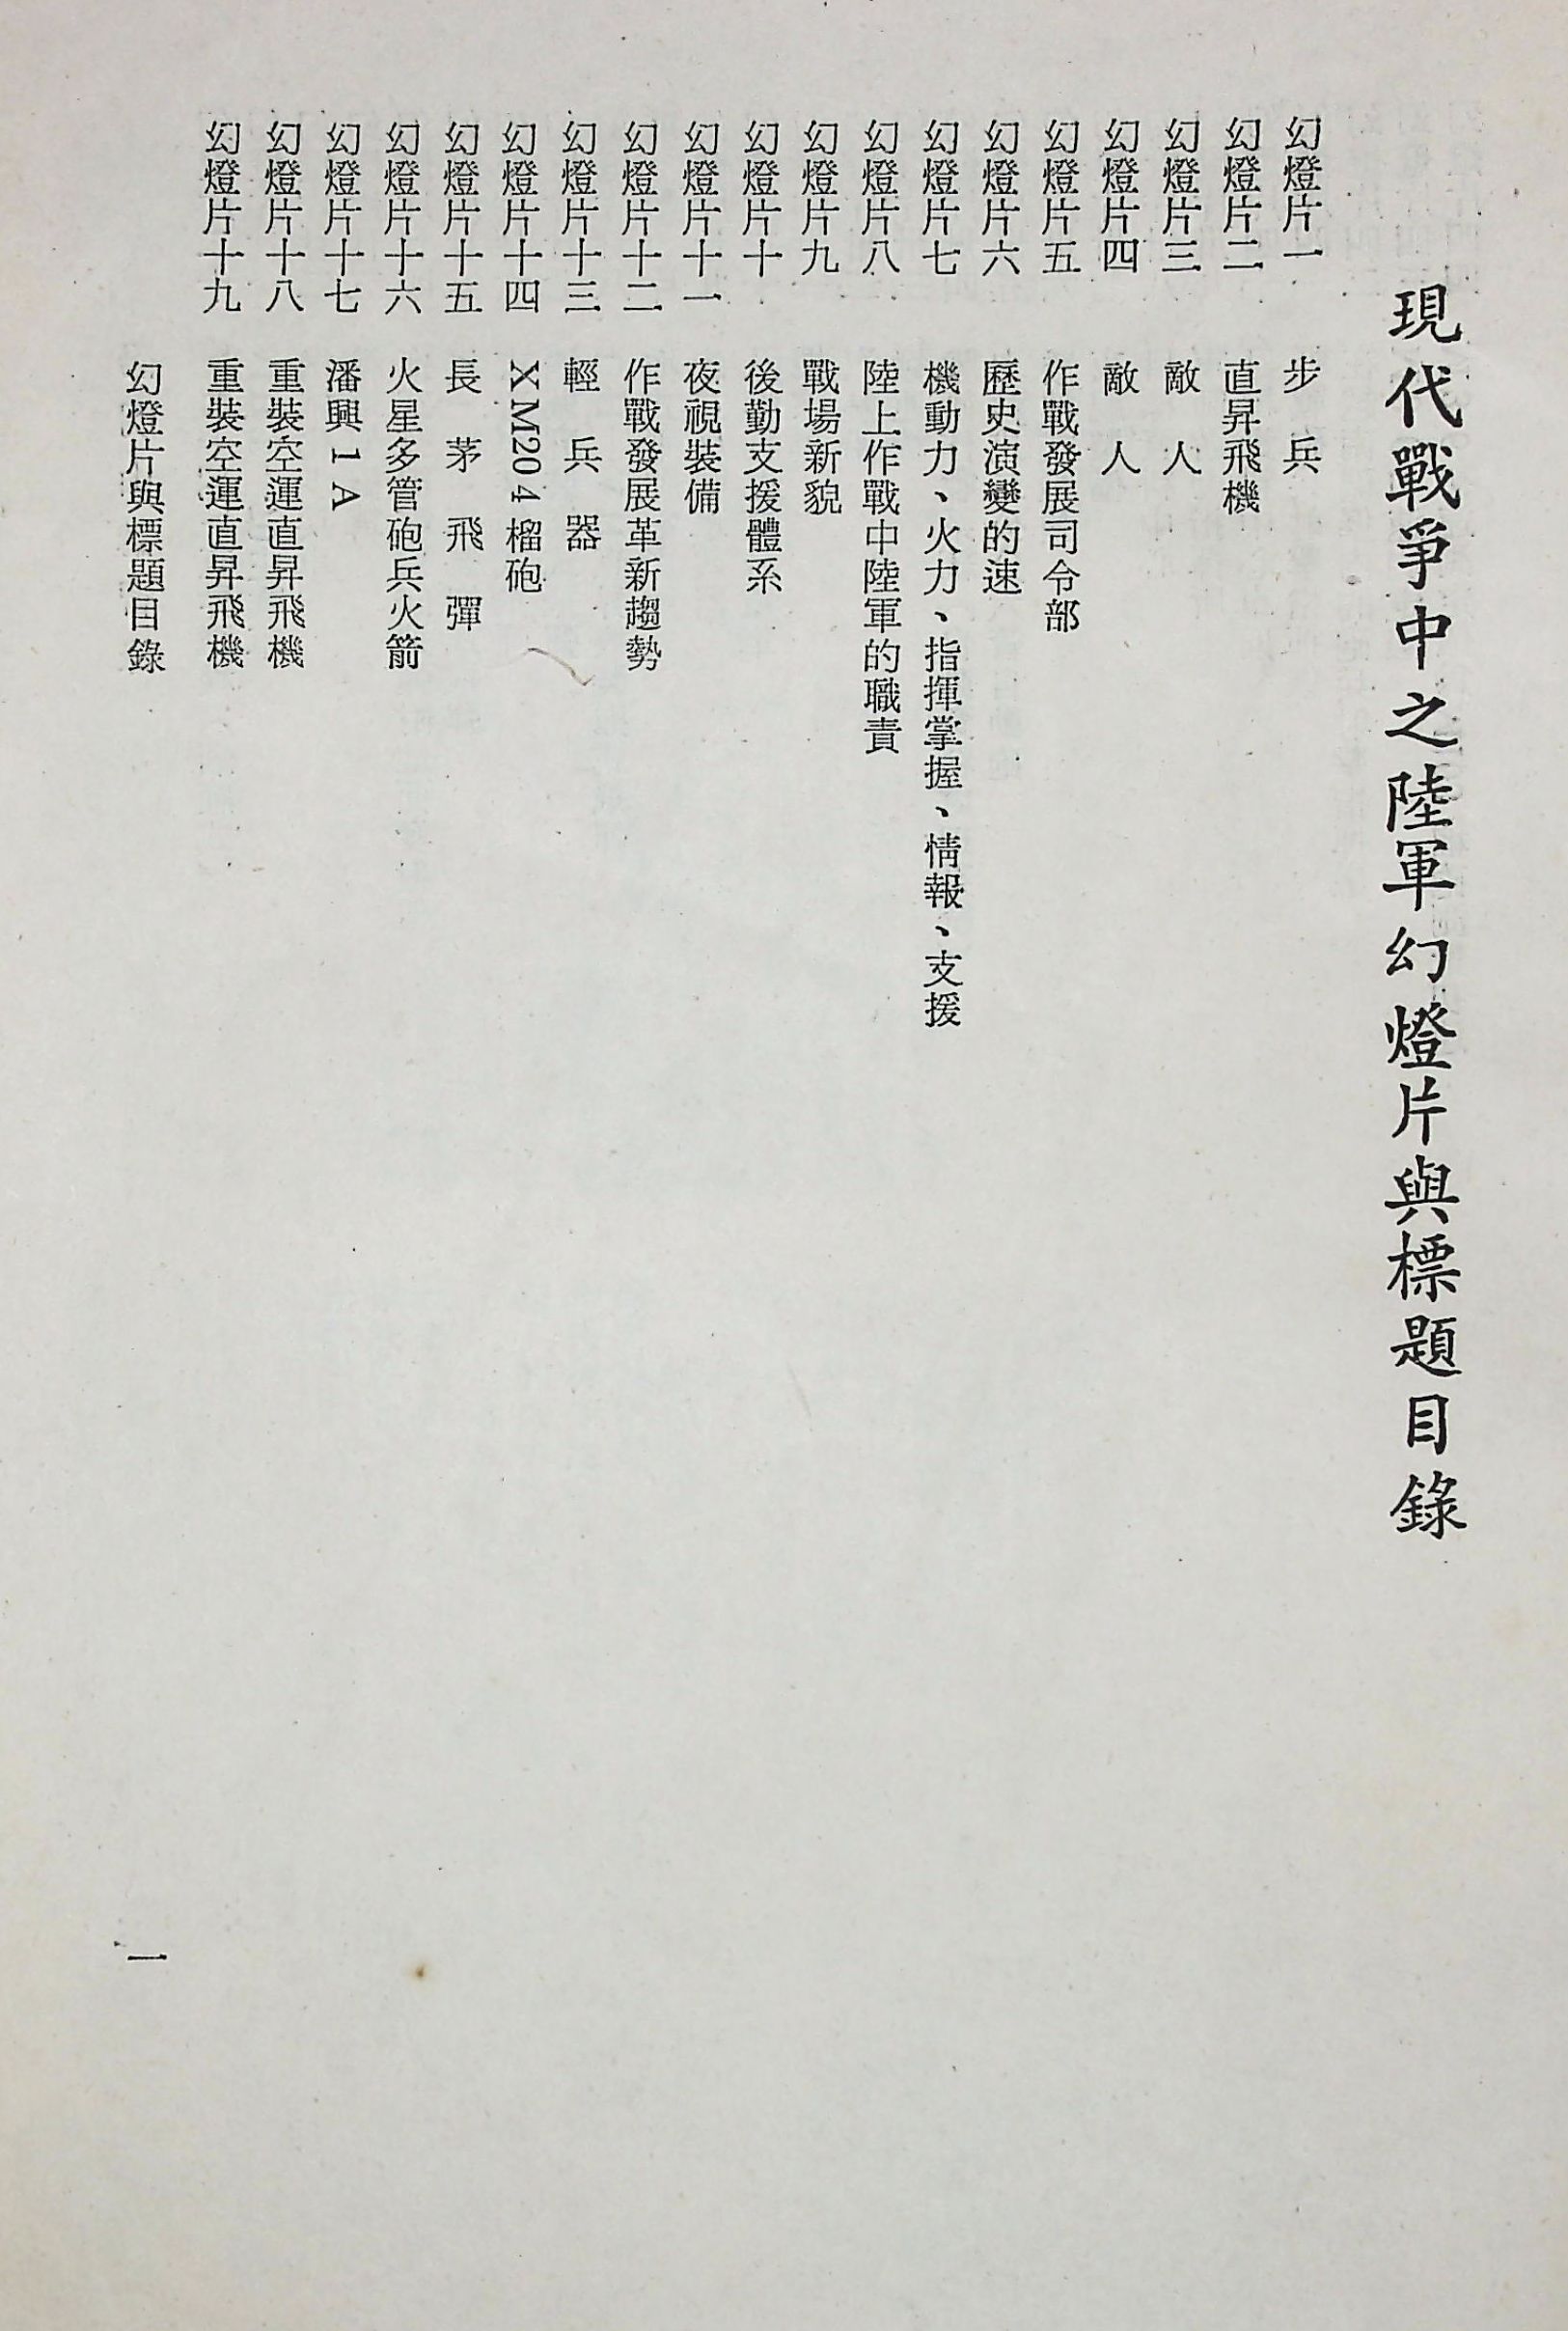 現代戰爭中之陸軍幻燈片與標題目錄
幻燈片一　步兵
幻燈片二　直昇飛機
幻燈片三　敵人
幻燈片四　敵人
幻燈片五　作戰發展司令部
幻燈片六　歷史演變的速
幻燈片七　機動力、火力、指揮掌握、情報、支援
幻燈片八　陸上作戰中陸軍的職責
幻燈片九　戰場新貌
幻燈片十　後勤支援體系
幻燈片十一　夜視裝備
幻燈片十二　作戰發展革新趨勢
幻燈片十三　輕兵器
幻燈片十四　XM204榴砲
幻燈片十五　長茅飛彈
幻燈片十六　火星多管砲兵火箭
幻燈片十七　潘興1A
幻燈片十八　重裝空運直昇飛機
幻燈片十九　重裝空運直昇飛機
幻燈片與標題目錄　一